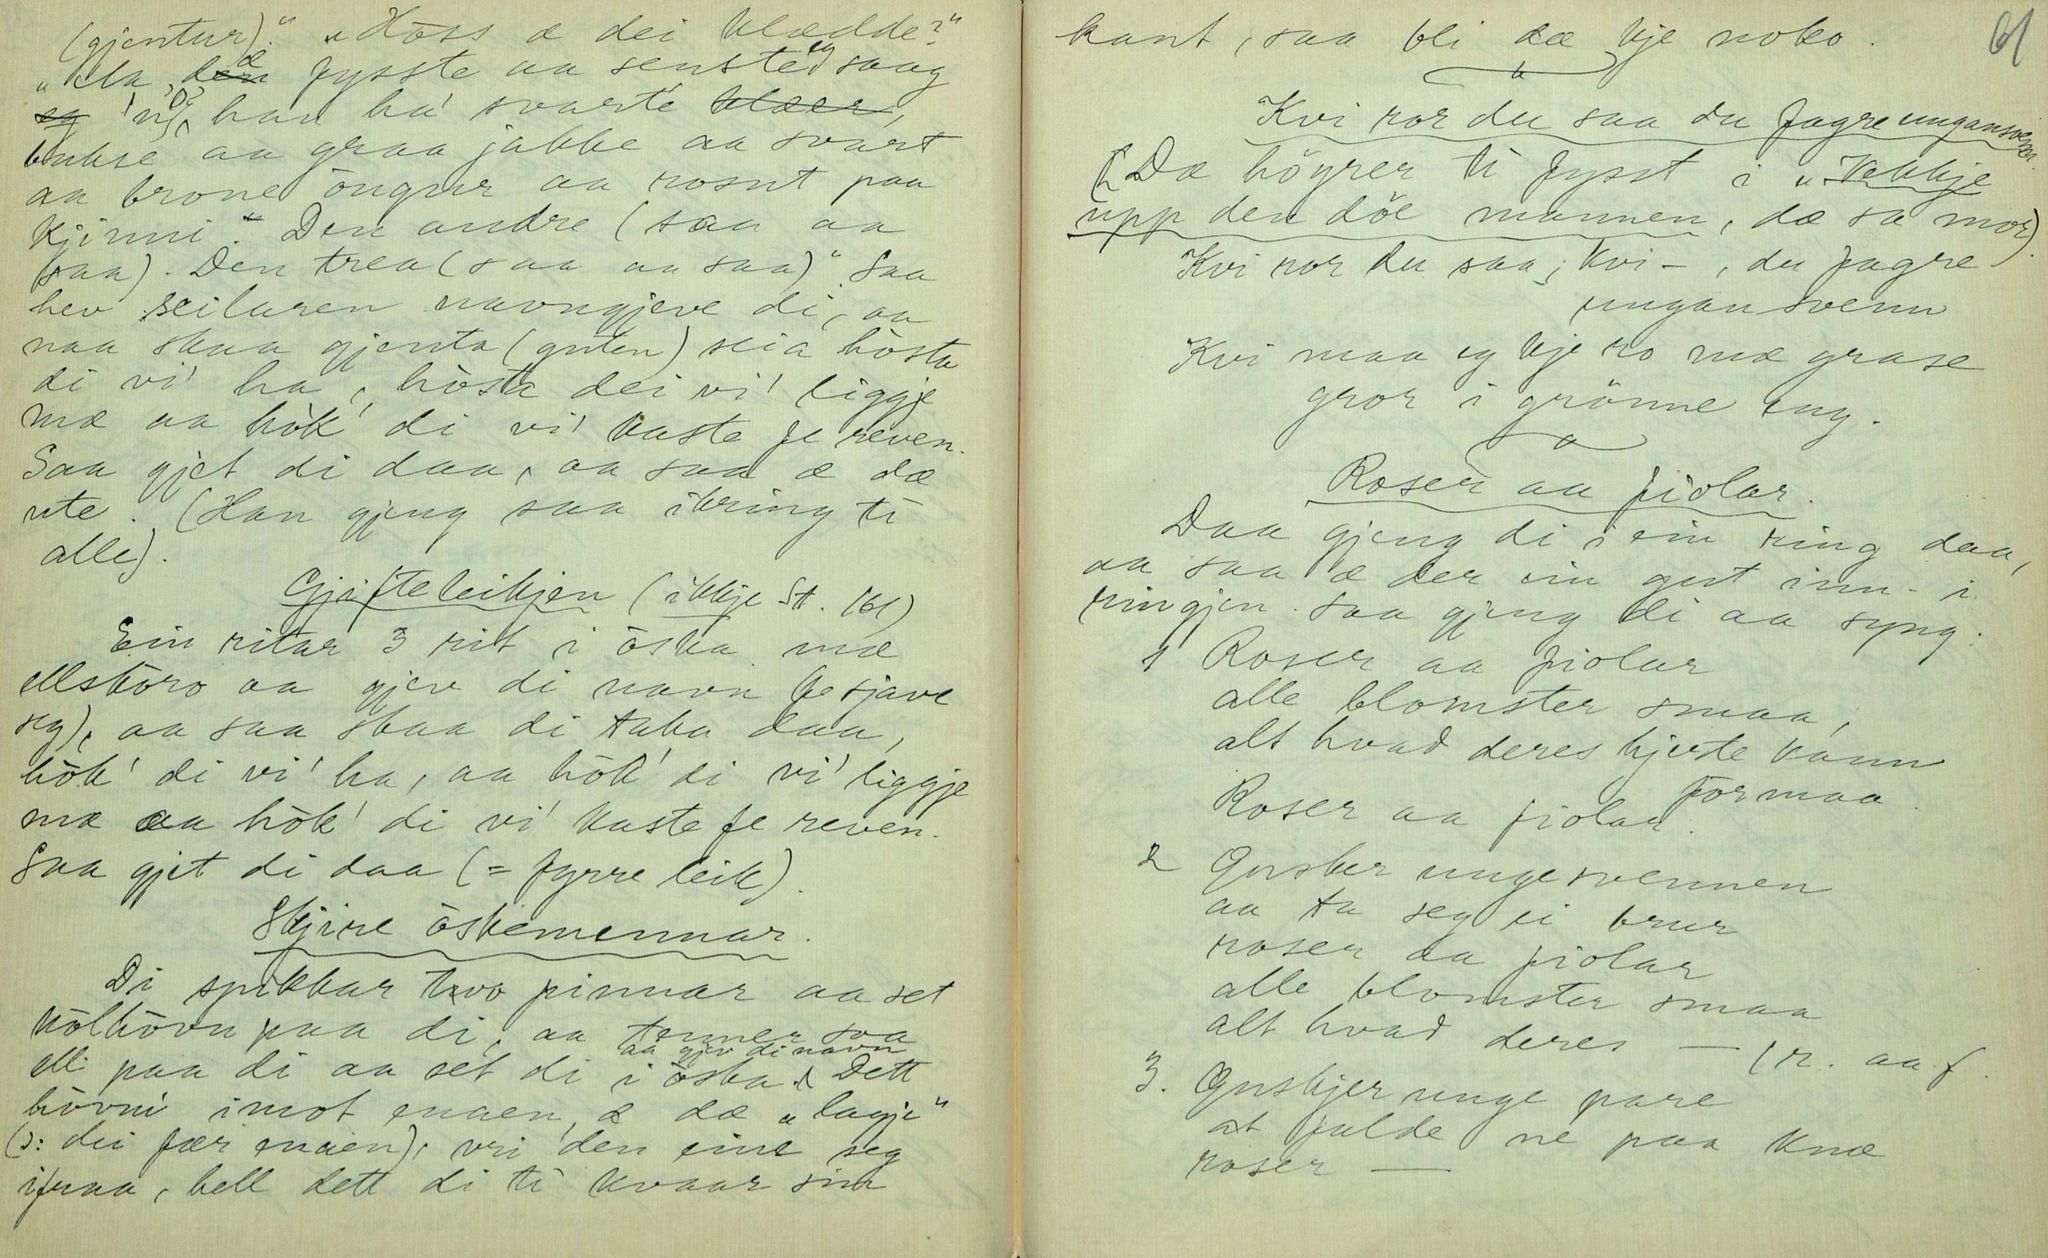 (gjentur)." „Höss æ dei klædde?"
„Ha, den æ fysste aa senste eg saag
eg 'n, han ha' svarte klæer,
bukse aa graa jakke aa svart
aa brone öugur aa rosut paa
kjinni." Den andre (saa aa
saa). Den trea (saa aa saa)". Saa
hev seilaren navngjeve di, aa
naa skaa gjenta (guten) seia hösta
di vi' ha, hösta dei vi' liggje
mæ aa hök' di vi' kaste fe reven.
Saa gjet di daa, aa saa æ dæ
ute. (Han gjeng saa ikring ti
alle).
Gjifteleikjen (ikkje St. 161)
Ein ritar 3 rit i öska mæ
ellsköro aa gjev di navn (fe sjave
seg), aa saa skaa di taka daa,
hök' di vi' ha, aa hök' di vi' liggje
mæ aa hök' di vi' kaste fe reven.
Saa gjet di daa (= fyrre leik).
Skjire öskemennar.
Di spikkar tvo pinnar aa set
kölhövu paa di, aa tenner saa
ell paa di aa set di i öska aa gjev di navn. Dett
hövni imot enaen, æ dæ „lagje"
(ɔ: dei fær enaen), vri den eine seg
ifraa, hell dett di ti kvaar sin
kant, saa bli dæ kje noko.
61
Kvi ror du saa du fagre ungansvenn
(Dæ höyrer ti fysst i „Vekkje
upp den döe mannen, dæ sa mor).
Kvi ror du saa; kvi – , du fagre
ungan svenn
Kvi maa eg kje ro mæ grase
gror i grönne eng.
Roser aa fiolar.
Daa gjeng di i ein ring daa,
aa saa æ der ein gut inn i
ringjen. Saa gjeng di aa syng:
1 Roser aa fiolar
alle blomster smaa,
alt hvad deres hjerte kann
formaa.
Roser aa fiolar.
2 Önsker unge svennen
aa ta seg ei brur
roser aa fiolar
alle blomster smaa
alt hvad deres — (r. aa f.
3. Önskjer unge pare
at falde ne paa knæ
roser —